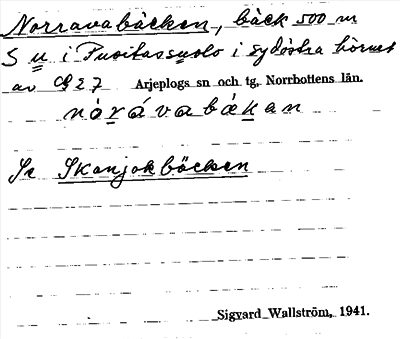 Norravabäcken, bäck 500 m
S u i Puoitassuolo i sydöstra hörnet
av 27 Arjeplogs sn och tg, Norrbottens län.
nåravabäkan
Se Skanjokbäcken
Sigvard Wallström, 1941.